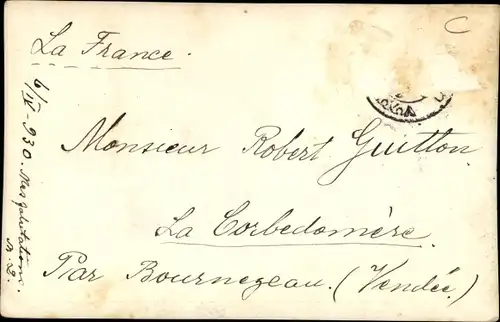 C
La France.
Monsieur Robert Guitton
La Corbedomère.
Par Bournezeau. (Vendée.)
6/IV-930. Mes salutations.